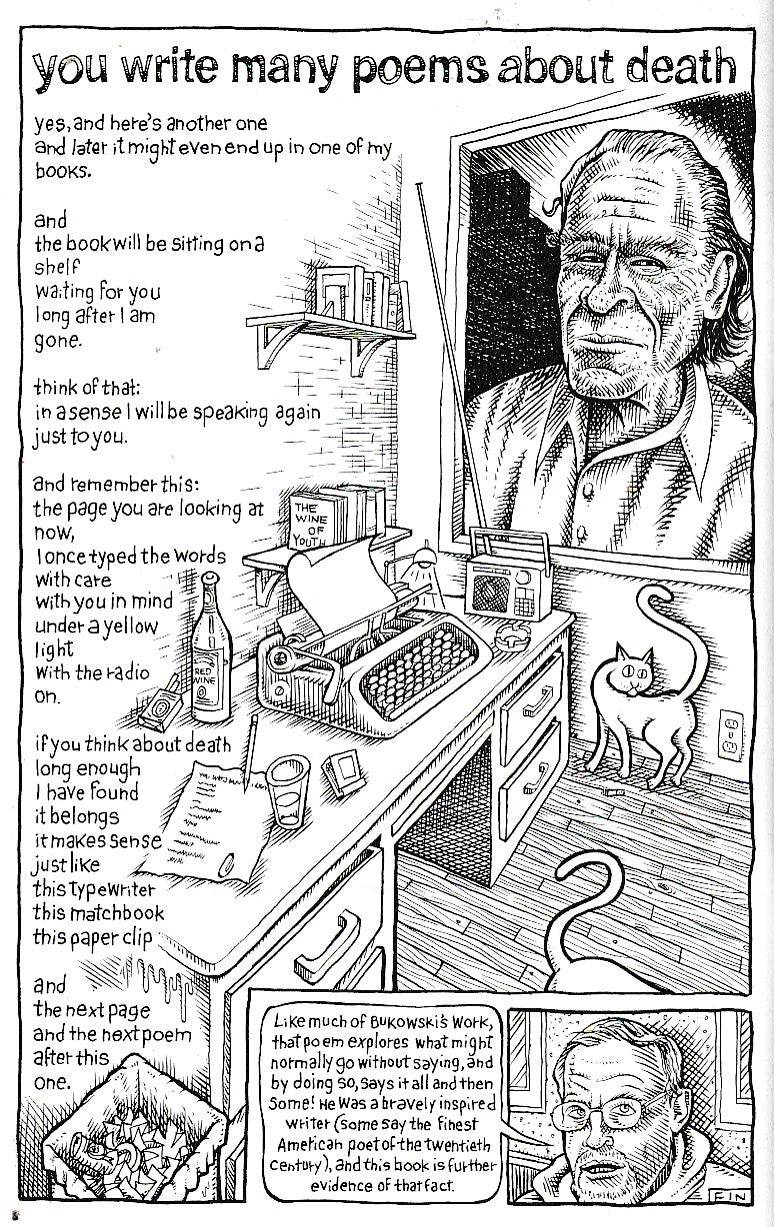 you write many poems about death
yes, and here's another one
and later it might even end up in one of my
books.
and
the book will be sitting on a
shelf
waiting for you
long after I am
gone.
think of that:
in a sense I will be speaking again
just to you.
and remember this:
the page you are looking at
now,
I once typed the words
with care
with you in mind
under a yellow
light
with the radio
on.
if you think about death
long enough
I have found
it belongs
it makes sense
just like
this typewriter
this matchbook
this paper clip
and
the next page
and the next poem
after this
one.
THE
WINE
OF
YOUTH
RED
WINE
Like much of Bukowski's work,
that poem explores what might
normally go without saying, and
by doing so, says it all and then
some! He was a bravely inspired
writer (some say the finest
American poet of the twentieth
century), and this book is further
evidence of that fact.
FIN
8